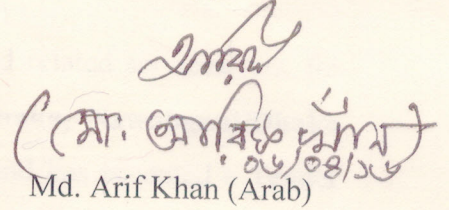 আরিফ
(মোঃ আরিফ খাঁন)
০৬/০৪/১৬
Md. Arif Khan (Arab)